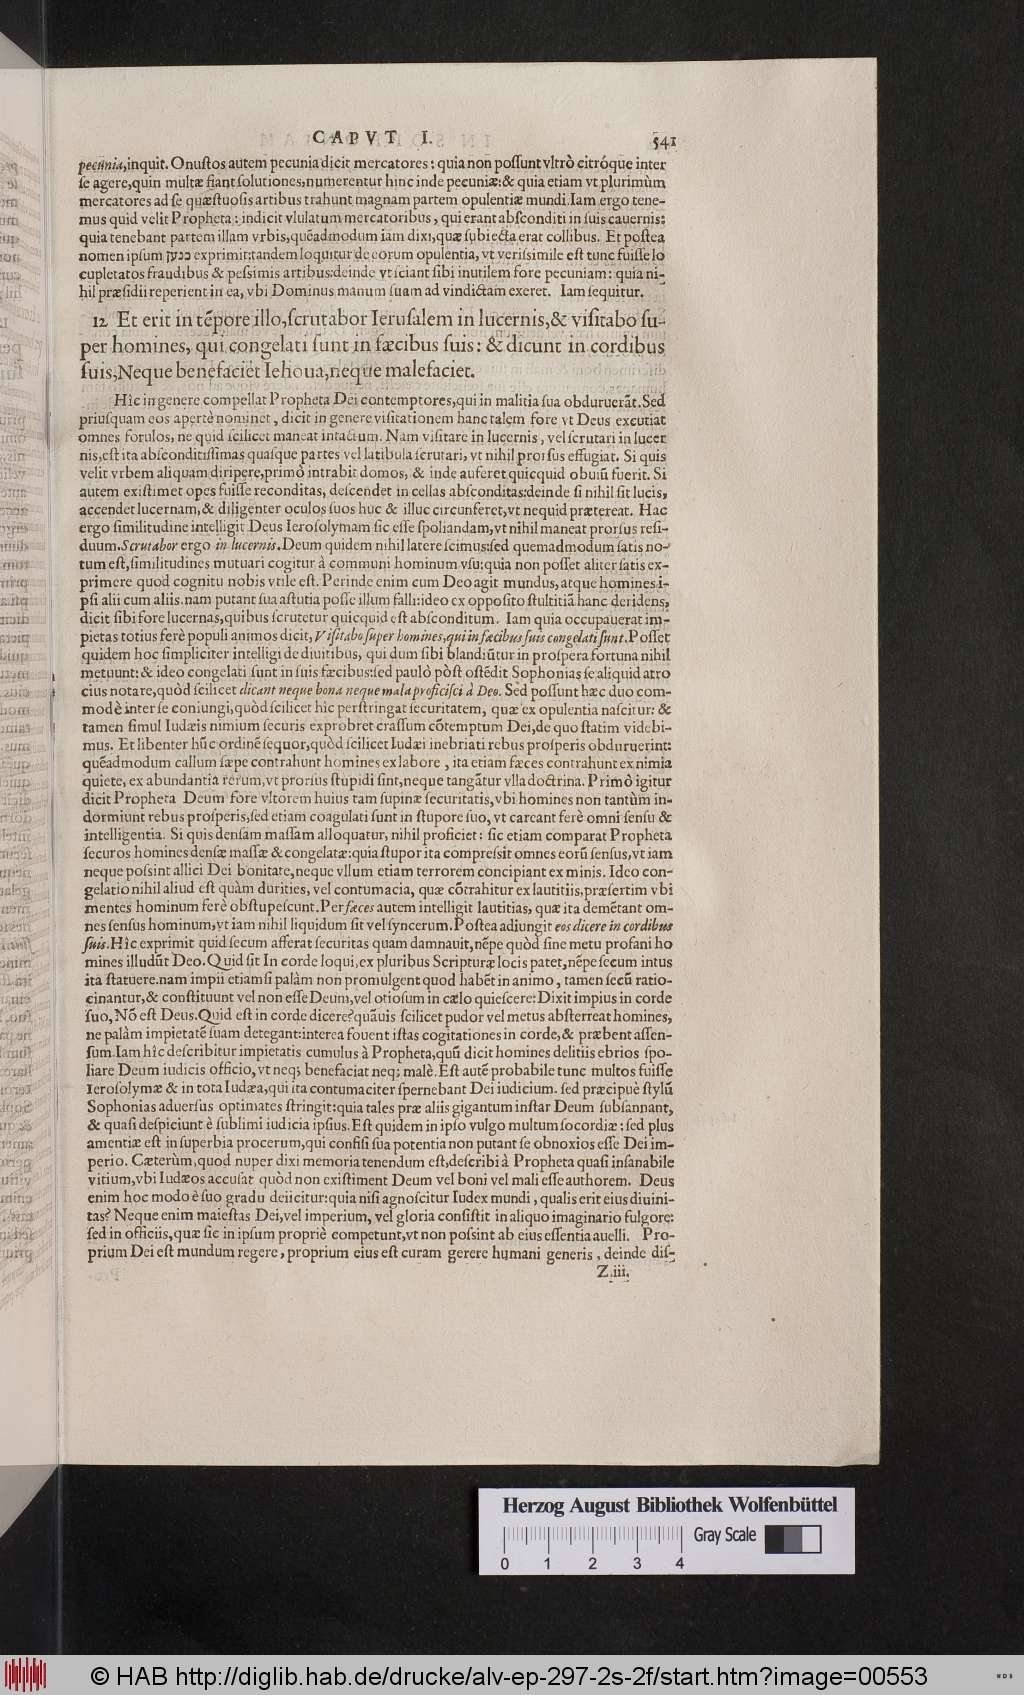 CAPVT I. 541
pecunia, inquit. Onustos autem pecunia dicit mercatores: quia non poſſunt vltrò citróque inter
ſe agere, quin multæ fiant ſolutiones, numerentur hinc inde pecuniæ: & quia etiam vt plurimùm
mercatores ad ſe quæſtuoſis artibus trahunt magnam partem opulentiæ mundi. Iam ergo tene-
mus quid velit Propheta: indicit vlulatum mercatoribus, qui erant abſconditi in ſuis cauernis:
quia tenebant partem illam vrbis, quẽadmodum iam dixi, quæ ſubiecta erat collibus. Et poſtea
nomen ipſum כנען exprimit: tandem loquitur de eorum opulentia, vt veriſsimile eſt tunc fuiſſe lo
cupletatos fraudibus & peſsimis artibus: deinde vt ſciant ſibi inutilem fore pecuniam: quia ni-
hil præſidii reperient in ea, vbi Dominus manum ſuam ad vindictam exeret. Iam ſequitur.
12 Et erit in tẽpore illo, ſcrutabor Ieruſalem in lucernis, & viſitabo ſu-
per homines, qui congelati ſunt in fæcibus ſuis: & dicunt in cordibus
ſuis, Neque benefaciet Iehoua, neque malefaciet.
Hîc in genere compellat Propheta Dei contemptores, qui in malitia ſua obduruerãt. Sed
priuſquam eos apertè nominet, dicit in genere viſitationem hanc talem fore vt Deus excutiat
omnes forulos, ne quid ſcilicet maneat intactum. Nam viſitare in lucernis, vel ſcrutari in lucer
nis, eſt ita abſconditiſſimas quaſque partes vel latibula ſcrutari, vt nihil prorſus effugiat. Si quis
velit vrbem aliquam diripere, primò intrabit domos, & inde auferet quicquid obuiũ fuerit. Si
autem exiſtimet opes fuiſſe reconditas, deſcendet in cellas abſconditas: deinde ſi nihil ſit lucis,
accendet lucernam, & diligenter oculos ſuos huc & illuc circunferet, vt nequid prætereat. Hac
ergo ſimilitudine intelligit Deus Ieroſolymam ſic eſſe ſpoliandam, vt nihil maneat prorſus reſi-
duum. Scrutabor ergo in lucernis. Deum quidem nihil latere ſcimus: ſed quemadmodum ſatis no-
tum eſt, ſimilitudines mutuari cogitur à communi hominum vſu: quia non poſſet aliter ſatis ex-
primere quod cognitu nobis vtile eſt. Perinde enim cum Deo agit mundus, atque homines i-
pſi alii cum aliis. nam putant ſua aſtutia poſſe illum falli: ideo ex oppoſito ſtultitiã hanc deridens,
dicit ſibi fore lucernas, quibus ſcrutetur quicquid eſt abſconditum. Iam quia occupauerat im-
pietas totius ferè populi animos dicit, Viſitabo ſuper homines, qui in fæcibus ſuis congelati ſunt. Poſſet
quidem hoc ſimpliciter intelligi de diuitibus, qui dum ſibi blandiũtur in proſpera fortuna nihil
metuunt: & ideo congelati ſunt in ſuis fæcibus: ſed paulò pòſt oſtẽdit Sophonias ſe aliquid atro
cius notare, quòd ſcilicet dicant neque bona neque mala proficiſci à Deo. Sed poſſunt hæc duo com-
modè inter ſe coniungi, quòd ſcilicet hîc perſtringat ſecuritatem, quæ ex opulentia naſcitur: &
tamen ſimul Iudæis nimium ſecuris exprobret craſſum cõtemptum Dei, de quo ſtatim videbi-
mus. Et libenter hũc ordinẽ ſequor, quòd ſcilicet Iudæi inebriati rebus proſperis obduruerint:
quẽadmodum callum ſæpe contrahunt homines ex labore, ita etiam fæces contrahunt ex nimia
quiete, ex abundantia rerum, vt prorſus ſtupidi ſint, neque tangãtur vlla doctrina. Primò igitur
dicit Propheta Deum fore vltorem huius tam ſupinæ ſecuritatis, vbi homines non tantùm in-
dormiunt rebus proſperis, ſed etiam coagulati ſunt in ſtupore ſuo, vt careant ferè omni ſenſu &
intelligentia. Si quis denſam maſſam alloquatur, nihil proficiet: ſic etiam comparat Propheta
ſecuros homines denſæ maſſæ & congelatæ: quia ſtupor ita compreſsit omnes eorũ ſenſus, vt iam
neque poſsint allici Dei bonitate, neque vllum etiam terrorem concipiant ex minis. Ideo con-
gelatio nihil aliud eſt quàm durities, vel contumacia, quæ cõtrahitur ex lautitiis, præſertim vbi
mentes hominum ferè obſtupeſcunt. Per fæces autem intelligit lautitias, quæ ita demẽtant om-
nes ſenſus hominum, vt iam nihil liquidum ſit vel ſyncerum. Poſtea adiungit eos dicere in cordibus
ſuis. Hîc exprimit quid ſecum afferat ſecuritas quam damnauit, nẽpe quòd ſine metu profani ho
mines illudũt Deo. Quid ſit In corde loqui, ex pluribus Scripturæ locis patet, nẽpe ſecum intus
ita ſtatuere. nam impii etiamſi palàm non promulgent quod habẽt in animo, tamen ſecũ ratio-
cinantur, & conſtituunt vel non eſſe Deum, vel otioſum in cælo quieſcere: Dixit impius in corde
ſuo, Nõ eſt Deus. Quid eſt in corde dicere? quãuis ſcilicet pudor vel metus abſterreat homines,
ne palàm impietatẽ ſuam detegant: interea fouent iſtas cogitationes in corde, & præbent aſſen-
ſum. Iam hîc deſcribitur impietatis cumulus à Propheta, quũ dicit homines delitiis ebrios ſpo-
liare Deum iudicis officio, vt neq; benefaciat neq; malè. Eſt autẽ probabile tunc multos fuiſſe
Ieroſolymæ & in tota Iudæa, qui ita contumaciter ſpernebant Dei iudicium. ſed præcipuè ſtylũ
Sophonias aduerſus optimates ſtringit: quia tales præ aliis gigantum inſtar Deum ſubſannant,
& quaſi deſpiciunt è ſublimi iudicia ipſius. Eſt quidem in ipſo vulgo multum ſocordiæ: ſed plus
amentiæ eſt in ſuperbia procerum, qui confiſi ſua potentia non putant ſe obnoxios eſſe Dei im-
perio. Cæterùm, quod nuper dixi memoria tenendum eſt, deſcribi à Propheta quaſi inſanabile
vitium, vbi Iudæos accuſat quòd non exiſtiment Deum vel boni vel mali eſſe authorem. Deus
enim hoc modo è ſuo gradu deiicitur: quia niſi agnoſcitur Iudex mundi, qualis erit eius diuini-
tas? Neque enim maieſtas Dei, vel imperium, vel gloria conſiſtit in aliquo imaginario fulgore:
ſed in officiis, quæ ſic in ipſum propriè competunt, vt non poſsint ab eius eſſentia auelli. Pro-
prium Dei eſt mundum regere, proprium eius eſt curam gerere humani generis, deinde diſ-
Z.iii.
Herzog August Bibliothek Wolfenbüttel
Gray Scale
0 1 2 3 4
© HAB http://diglib.hab.de/drucke/alv-ep-297-2s-2f/start.htm?image=00553